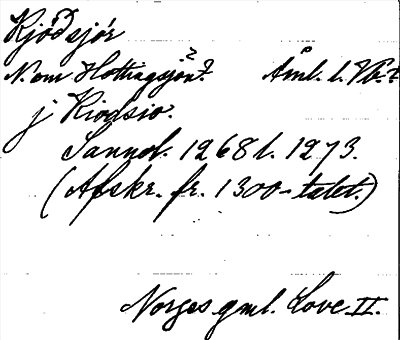 Kjoðsjór
N. om Hottingsjøn?? Åml. l. Nb.?
j Kiodsio.
Sannol. 1268 l. 1273.
(Afskr. fr. 1300-talet.)
Norges gml. Love II.